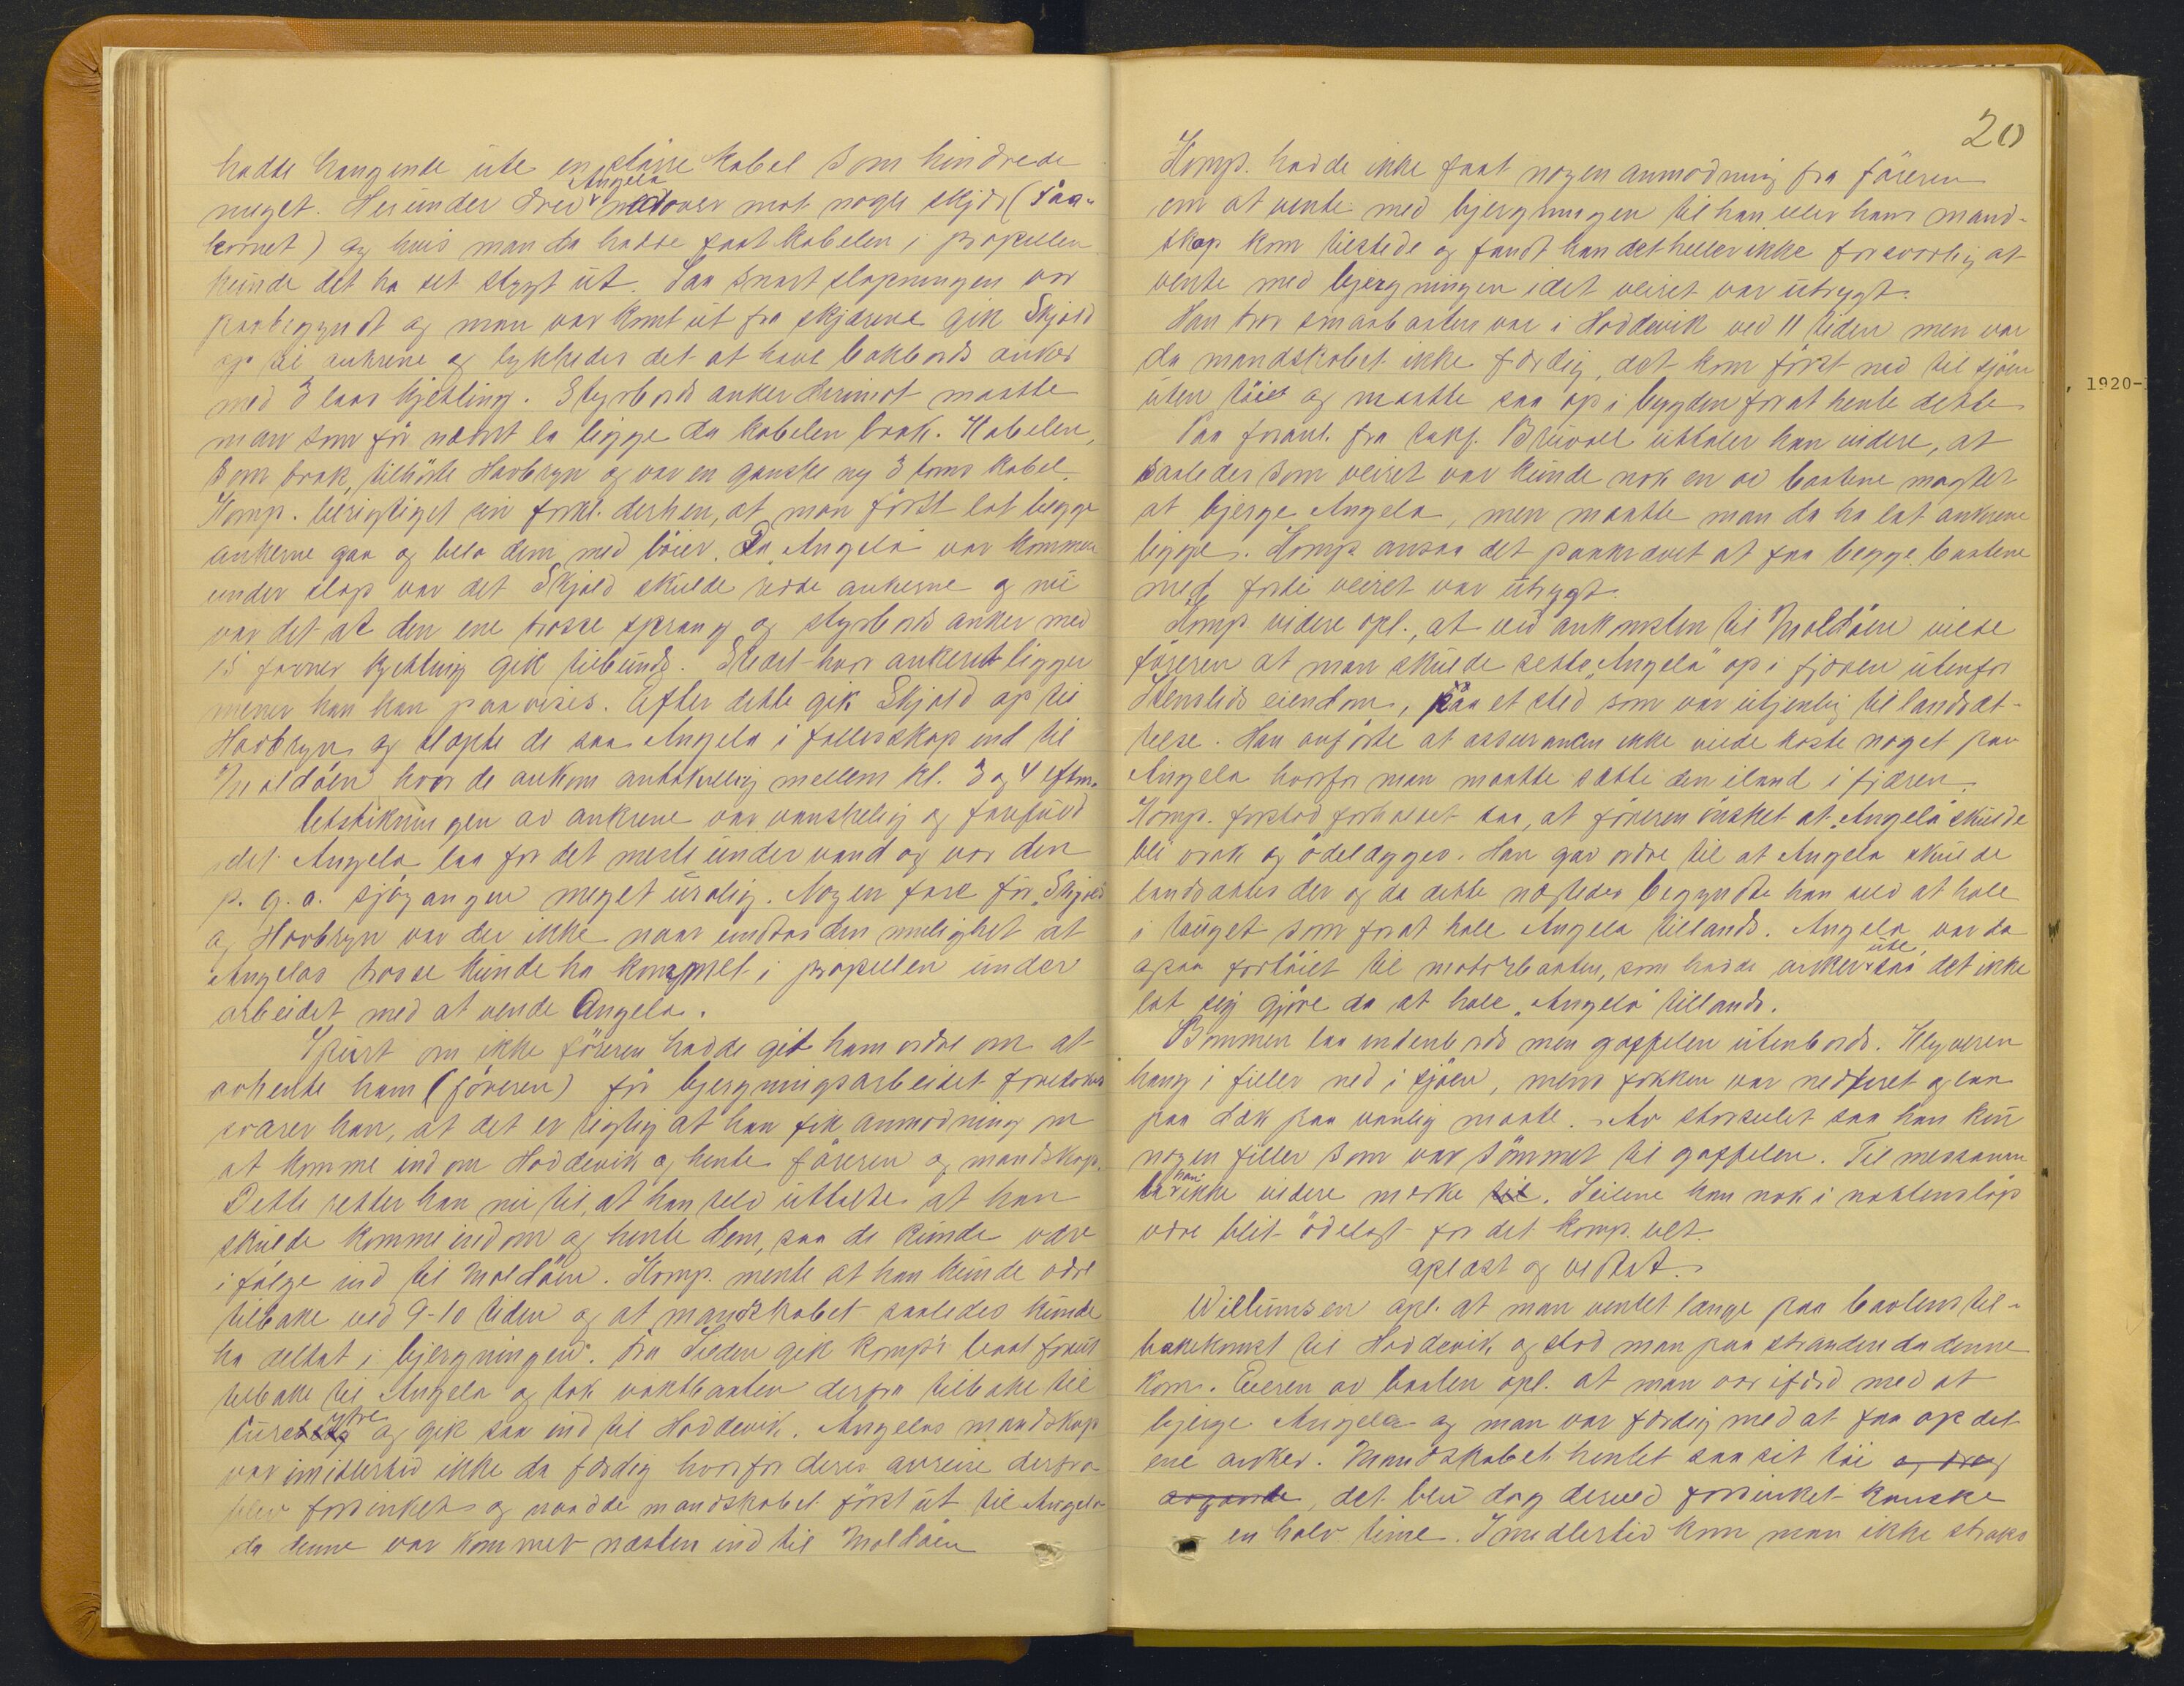 hadde hængende ute en større kabel som hindrede
meget. Herunder drev Angela nedover mot nogle skjær (Saa-
kornet) og hvis man da hadde faat kabelen i propellen
kunde det ha set stygt ut. Saa snart slæpningen var
paabegyndt og man var komt ut fra skjærene gik Skjold
op til ankrene og lykkedes det at have bakbords anker
med 3 laas kjetting. Styrbords anker derimot maatte
man som før nævnt la ligge da kabelen brak. Kabelen,
som brak, tilhørte Havbryn og var en ganske ny 3 toms kabel.
Komp. berigtiget sin forkl. derhen, at man først lot begge
ankerne gaa og belo dem med bøier. Da Angela var kommen
under slæp var det Skjold skulde redde ankerne og nu
var det at den ene trosse sprang og styrbords anker med
15 favner kjetting gik tilbunds. Stedet hvor ankeret ligger
mener han kan paavises. Efter dette gik Skjold op til
Havbryn og slæpte de saa Angela i fællesskap ind til
Moldöen hvor de ankom antakelig mellem kl. 3 og 4 eftm.
Utstikningen av ankrene var vanskelig og farefuld
idet Angela laa for det meste under vand og var den
p. g. a. sjögangen meget urolig. Nogen fare for Skjold
og Havbryn var der ikke naar undtas den mulighet at
Angelas trosse kunde ha kommet i propellen under
arbeidet med at vende Angela.
Spurt om ikke föreren hadde git ham ordre om at
avhente ham (föreren) för bjergningsarbeidet foretokes
svarer han, at det er rigtig at han fik anmodning om
at komme indom Hoddevik og hente föreren og mandskap.
Dette retter han nu til, at han selv uttalte at han
skulde komme indom og hente dem, saa de kunde være
i følge ind til Moldöen. Komp. mente at han kunde være
tilbake ved 9-10 tiden og at mandskabet saaledes kunde
ha deltat i bjergningen. Fra Leeden gik komp's baat forut
tilbake til Angela og tok vaktbaaten derfra tilbake til
ytre og gik saa ind til Hoddevik. Angelas mandskap
var imidlertid ikke da færdig hvorfor deres avreise derfra
blev forsinket og naadde mandskabet først ut til Angela
da denne var kommet næsten ind til Moldöen
20
Komp. hadde ikke faat nogen anmodning fra föreren
om at vente med bjergningen til han eller hans mand-
skap kom tilstede og fandt han det heller ikke forsvarlig at
vente med bjergningen idet veiret var utrygt.
Han tror smaabaaten var i Hoddevik ved 11 tiden men var
da mandskabet ikke færdig, det kom först ned til sjöen
uten töiet og maatte saa op i bygden for at hente dette
Paa foranl. fra sakf. Bruvoll uttaler han videre, at
saaledes som veiret var kunde nok en av baatene magtet
at bjerge Angela, men maatte man da ha lat ankrene
ligge. Komp. ansaa det paakrævet at faa begge baatene
med fordi veiret var utrygt.
Komp. videre opl., at ved ankomsten til Moldöen vilde
föreren at man skulde sette "Angela" op i fjæren utenfor
Stenslids eiendom, paa et sted som var utjenlig til landsæt-
telse. Han anførte at assurancen ikke vilde koste noget paa
Angela hvorfor man maatte sætte den iland i fjæren.
Komp. forstod forholdet saa, at föreren önsket at "Angela" skulde
bli vrak og ödelægges. Han gav ordre til at Angela skulde
landsættes der og da dette nægtedes begyndte han selv at hale
i tauget som for at hale Angela tillands. Angela var da
ogsaa fortöiet til motorbaaten, som hadde anker ute saa det ikke
lot sig gjöre da at hale "Angela" tillands.
Bommen laa indenbords men gaffelen utenbords. Klyveren
hang i filler ned i sjöen, mens fokken var nedfiret og laa
paa dæk paa vanlig maate. Av storseilet saa han kun
nogen filler som var sömmet til gaffelen. Til mesanen
la han ikke videre merke til. Seilene kan nok i nattens löp
være blit ödelagt for det komp. vet.
Oplæst og vedtat.
Willumsen opl. at man ventet længe paa baatens til-
bakekomst til Hoddevik og stod man paa stranden da denne
kom. Eieren av baaten opl. at man var ifærd med at
bjerge Angela og man var færdig med at faa op det
ene anker. Mandskabet hentet saa sit töi og drog
avgaarde, det blev dog derved forsinket kanske
en halv time. Imidlertid kom man ikke straks
, 1920-